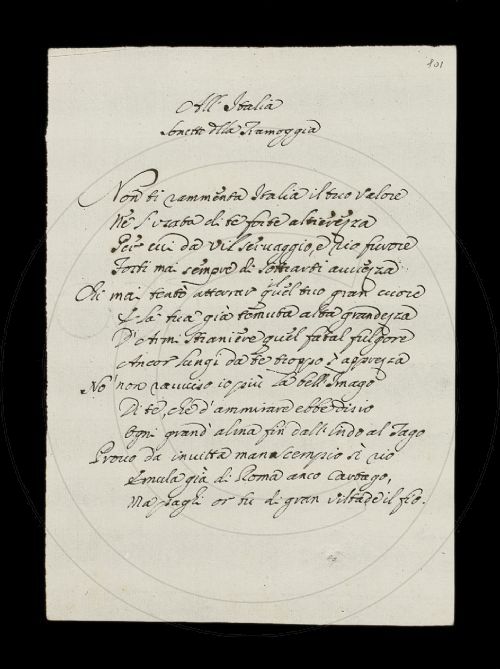 801
All' Italia
Sonetto della Ramoggia
Non ti rammenta Italia il tuo valore
Ne si vanta di te forte alterezza
Per cui da vil servaggio, e rio furore
Fosti mai sempre di sottrarti avvezza
Chi mai tentò atterrar quel tuo gran cuore
E la tua già temuta alta grandezza
D'Armi straniere quel fatal fulgore
Ancor lungi da te troppo s'apprezza
No' non ravviso io più la bell'Imago
Di te, che d'ammirare ebbe disio
Ogni grand'alma fin dall'Indo al Tago
Provò da invitta man scempio sì rio
Emula già di Roma anco Cartago,
Ma paghi or tu di gran viltade il fio.